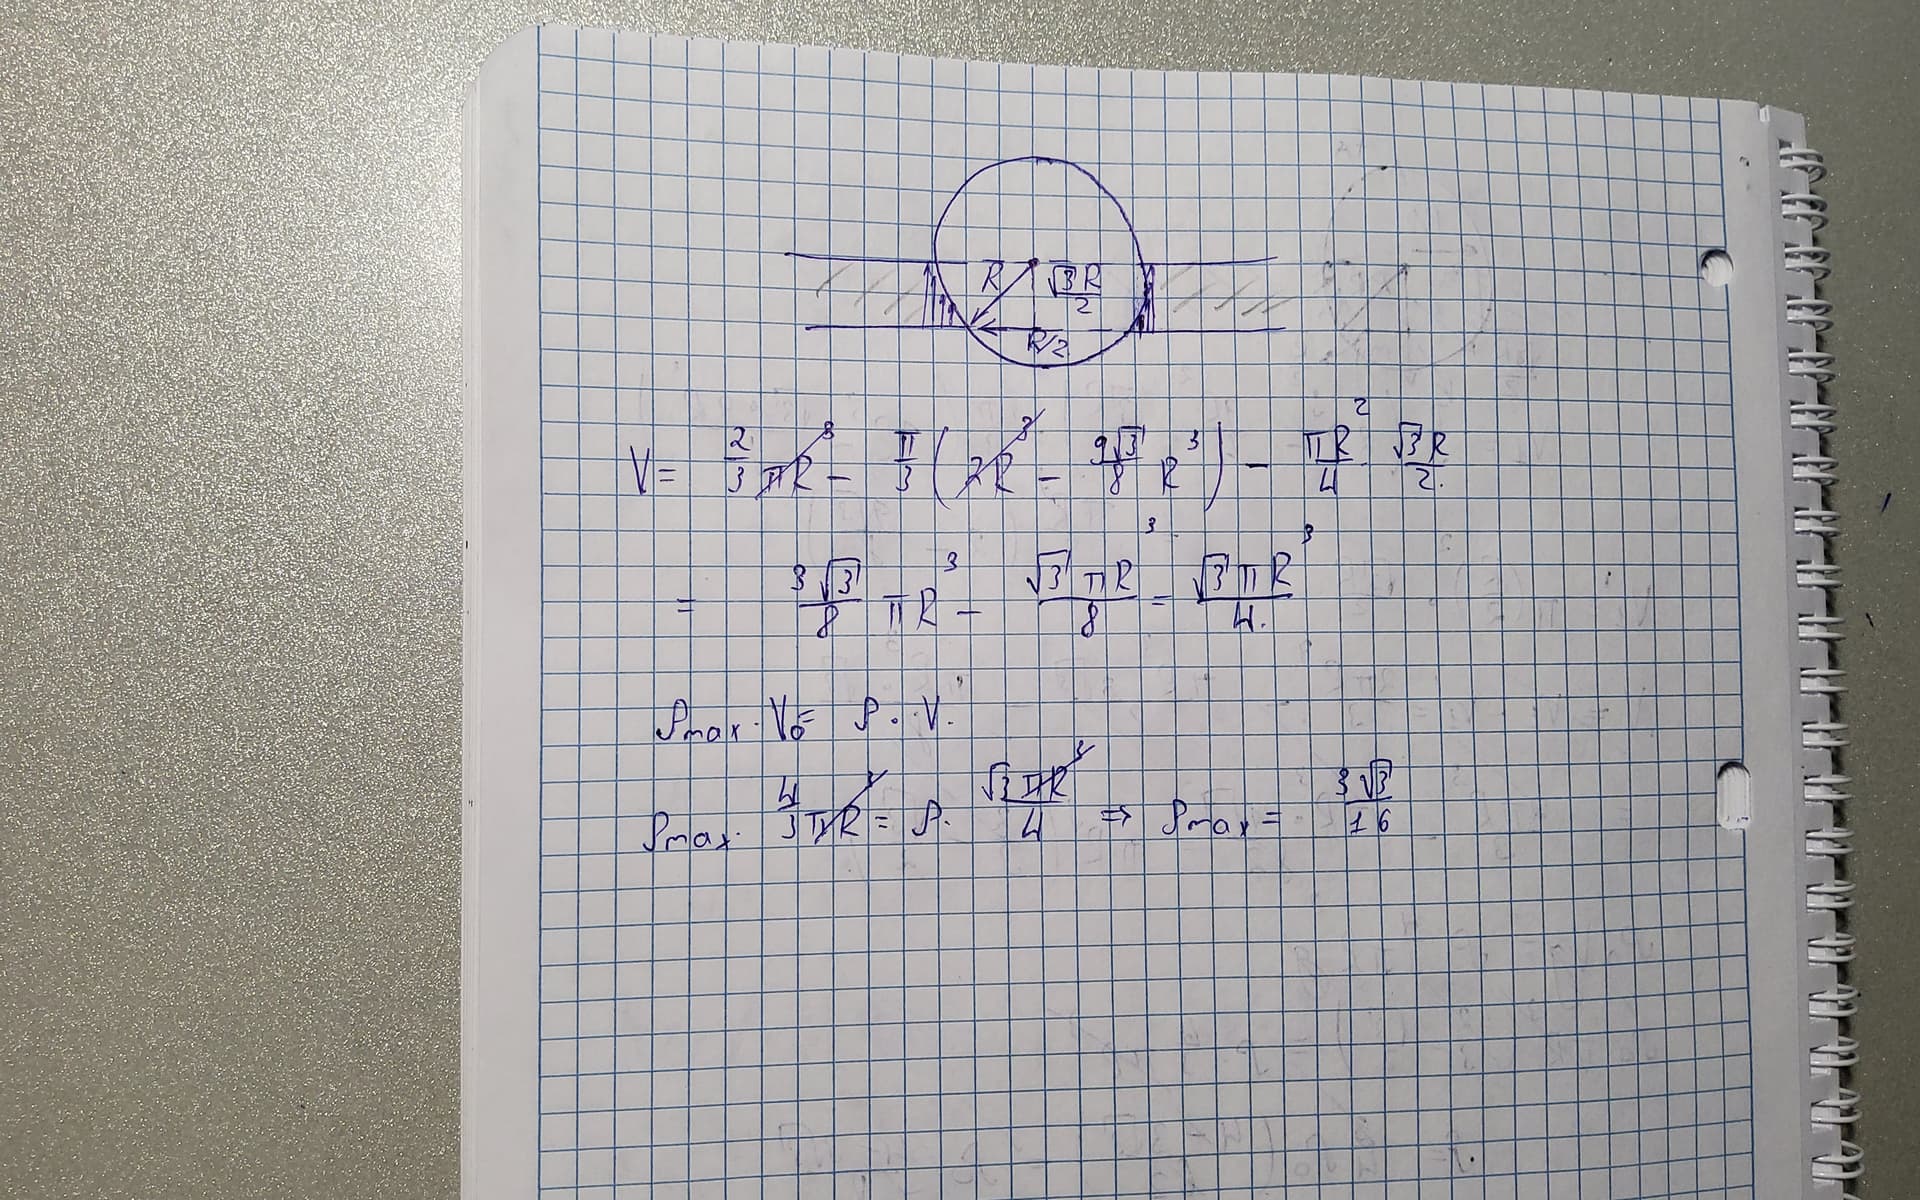 R √3R/2
R/2
V = 2/3 πR³ - π/3 (2R³ - 9√3/8 R³) - πR²/4 · √3R/2.
= 3√3/8 πR³ - √3πR³/8 = √3πR³/4.
ρmax · V₀ = ρ · V.
ρmax · 4/3 πR³ = ρ · √3πR³/4 ⇒ ρmax = 3√3/16